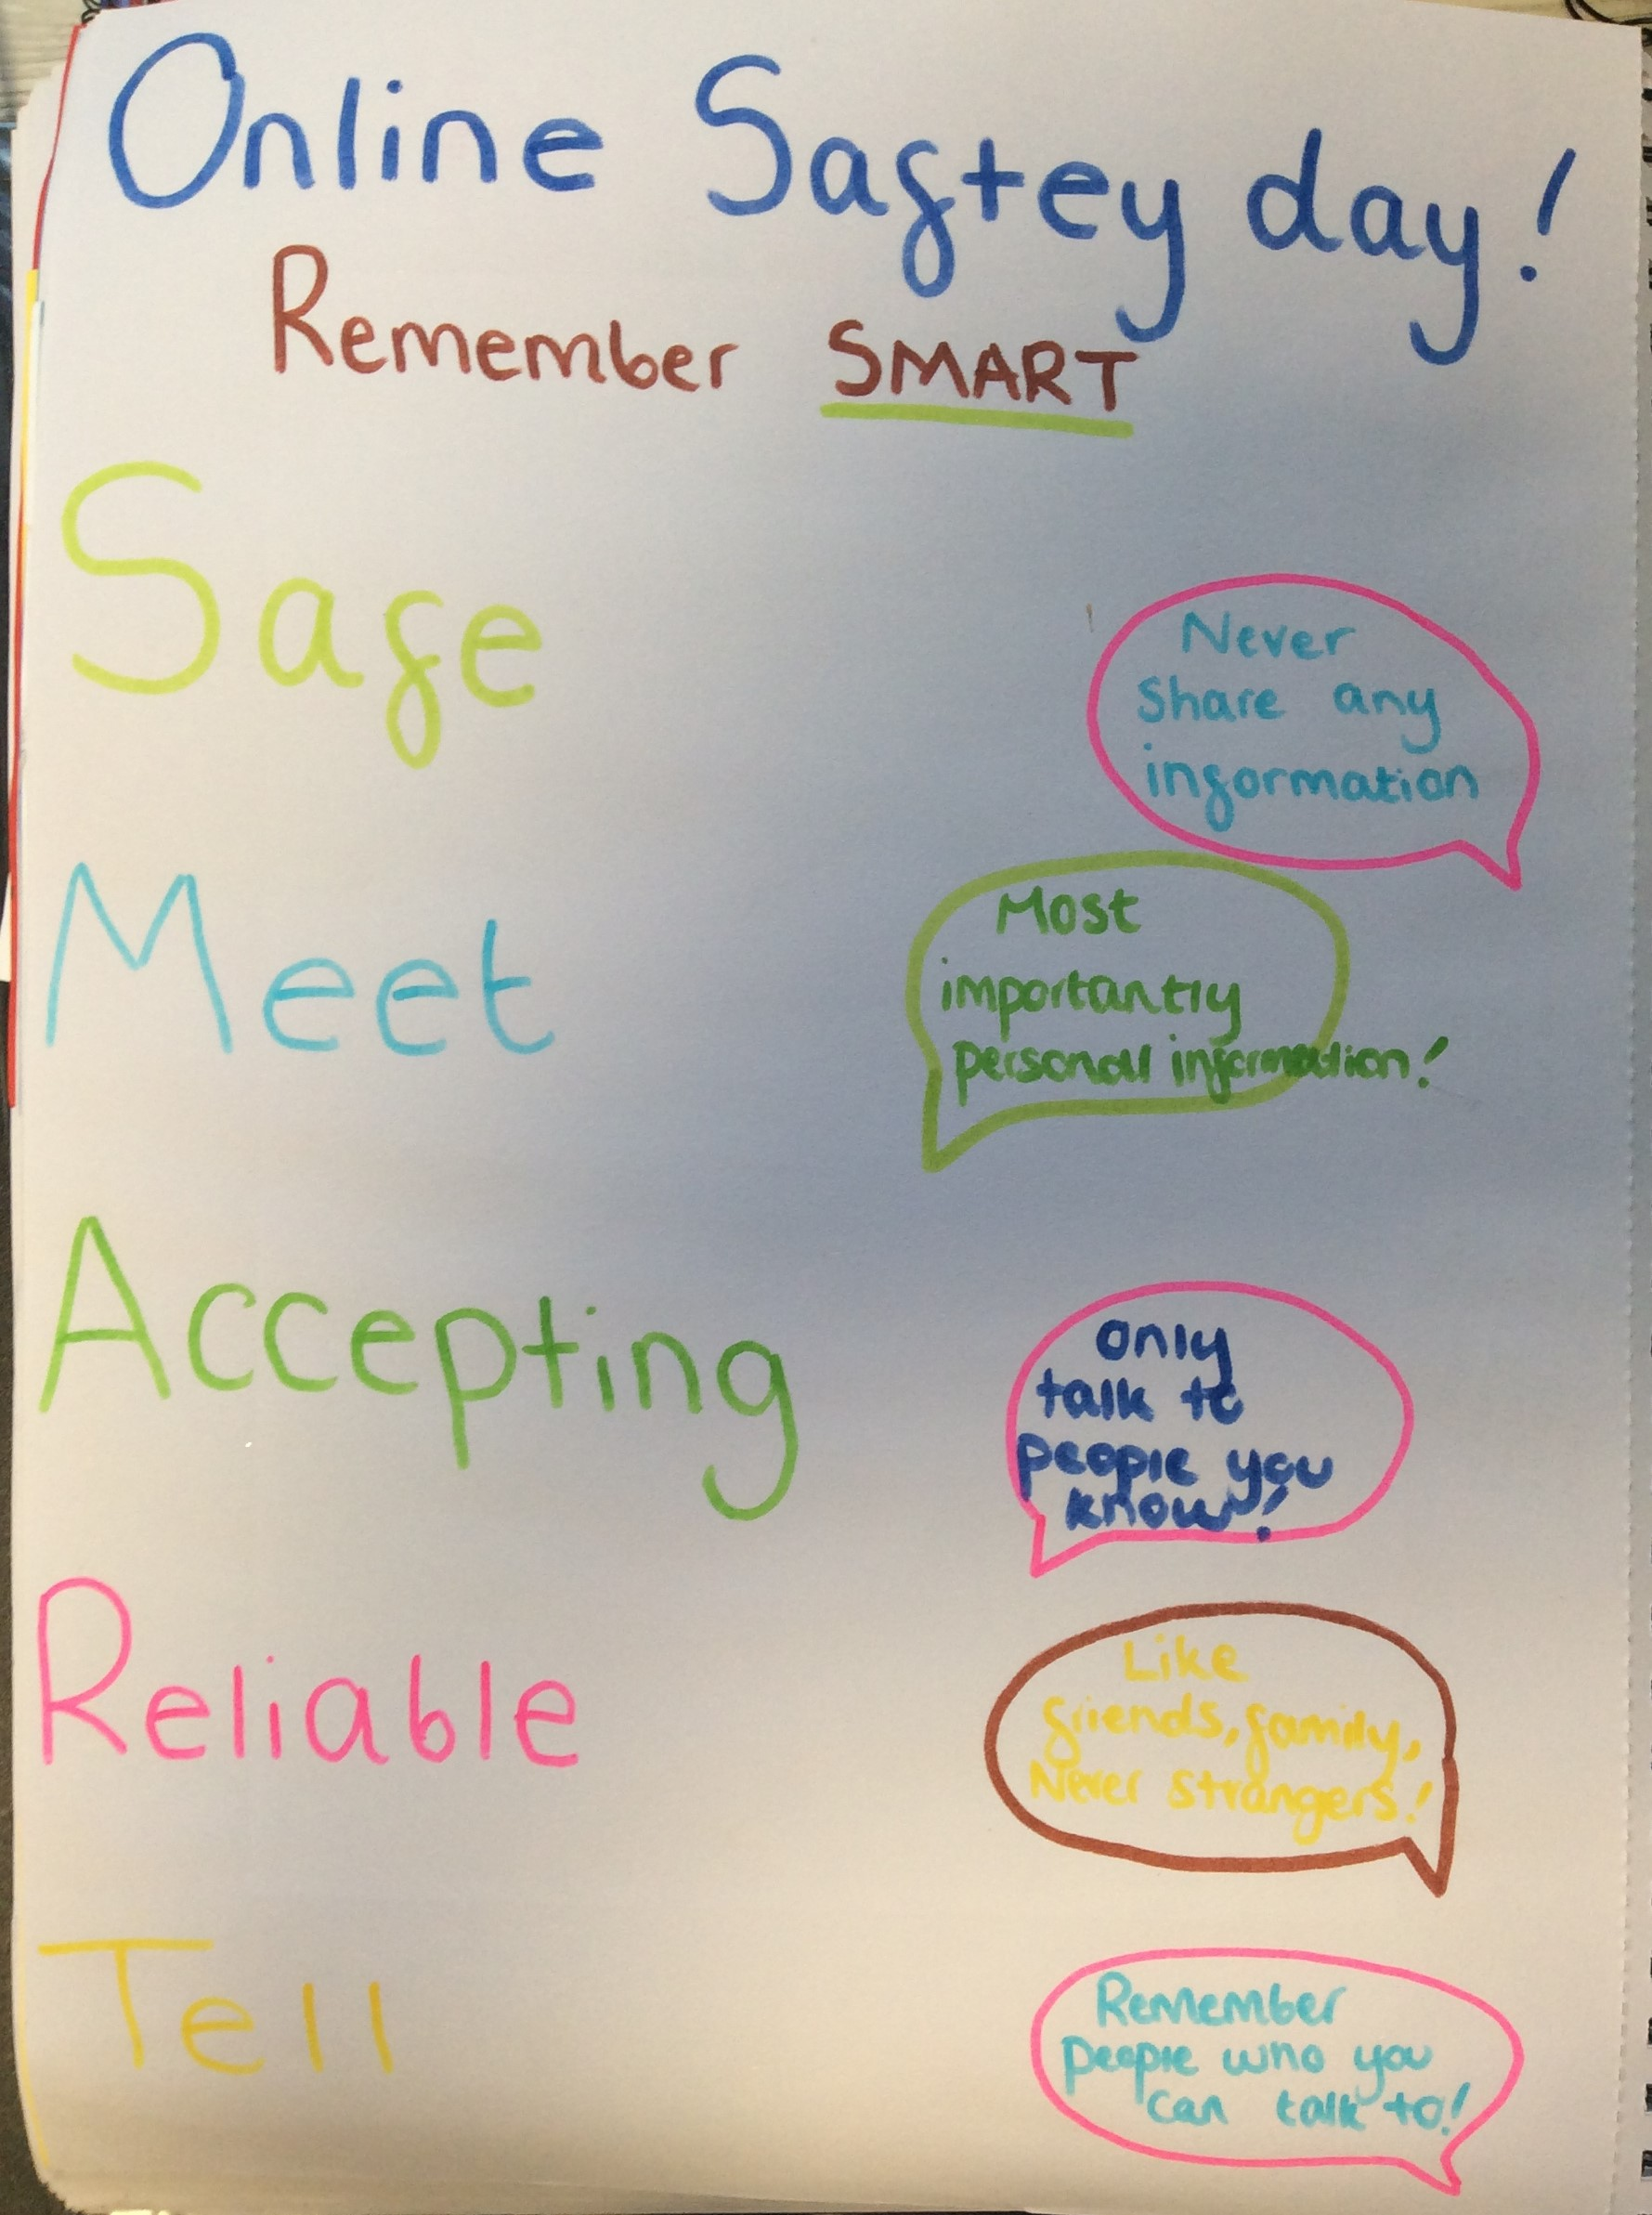 Online Saftey day!
Remember SMART
Safe
Never
share any
information
Meet
Most
importantly
personal information!
Accepting
only
talk to
people you
know!
Reliable
Like
friends, family,
Never strangers!
Tell
Remember
people who you
can talk to!